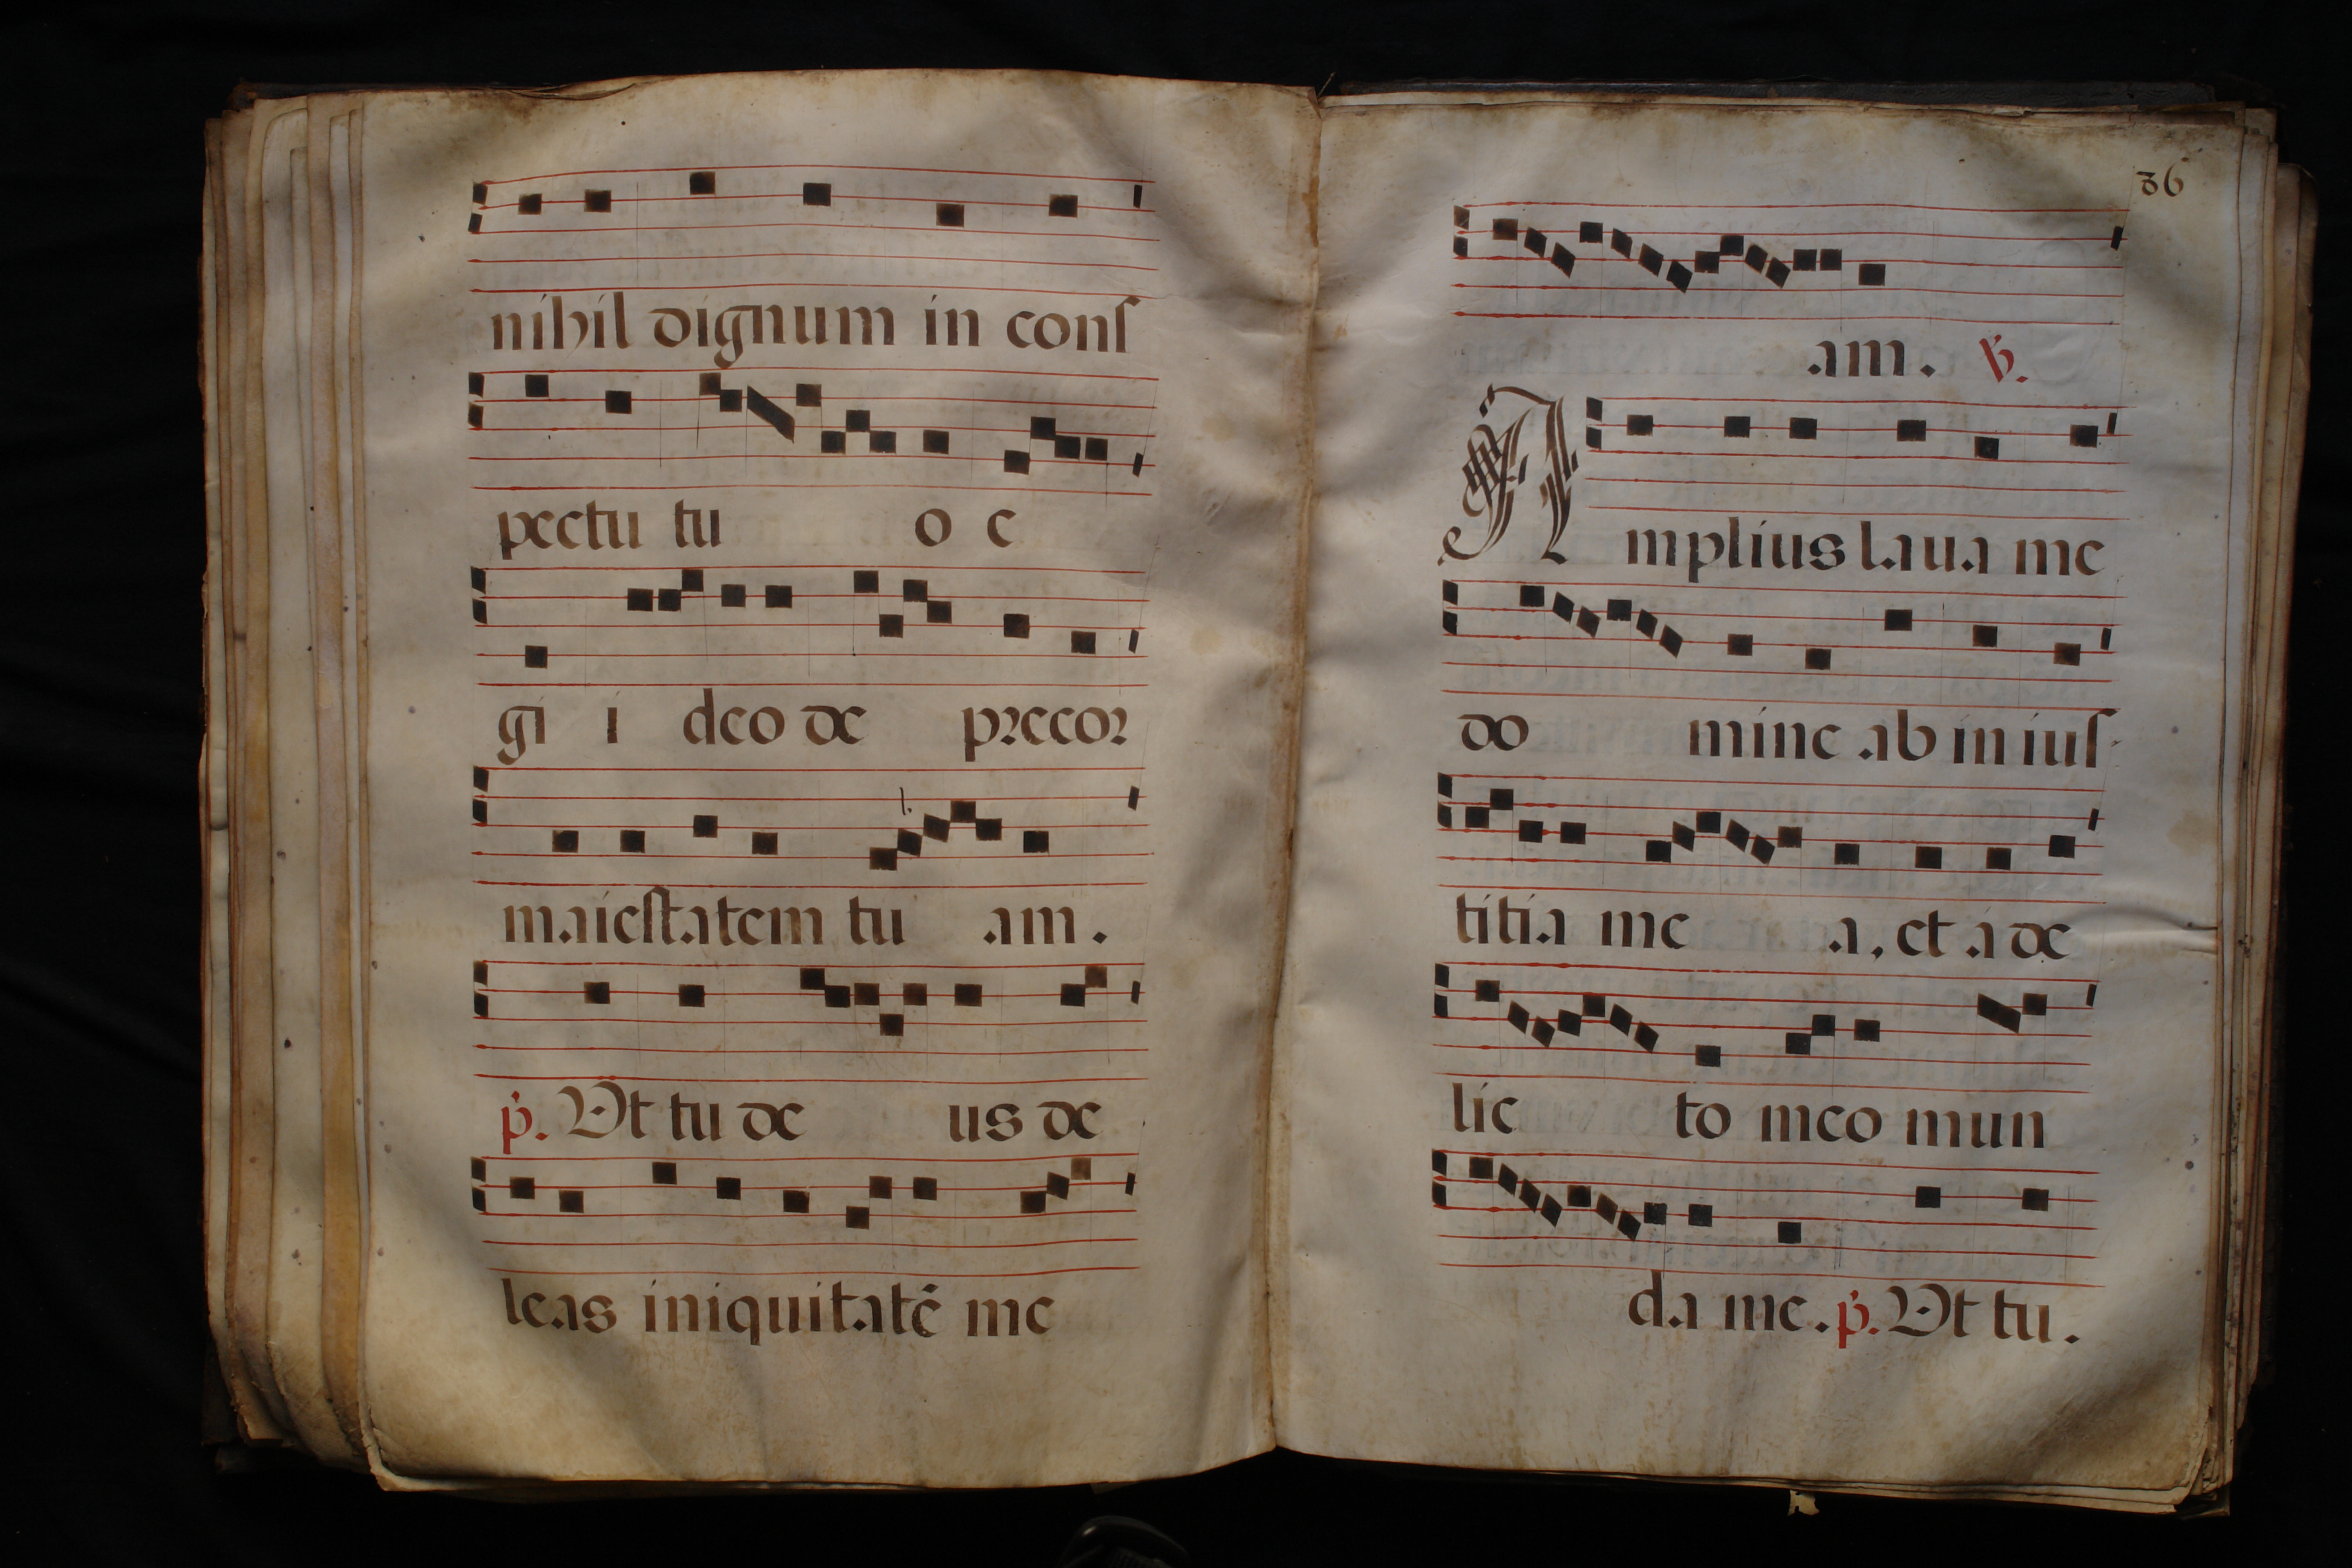 nihil dignum in conſ
pectu tu o e
gi i deo de precor
maieſtatem tu am.
p. Ut tu de us de
leas iniquitatē me
36
am. V.
Amplius laua me
do mine ab in iuſ
titia me a, et a de
lic to meo mun
da me. p. Ut tu.